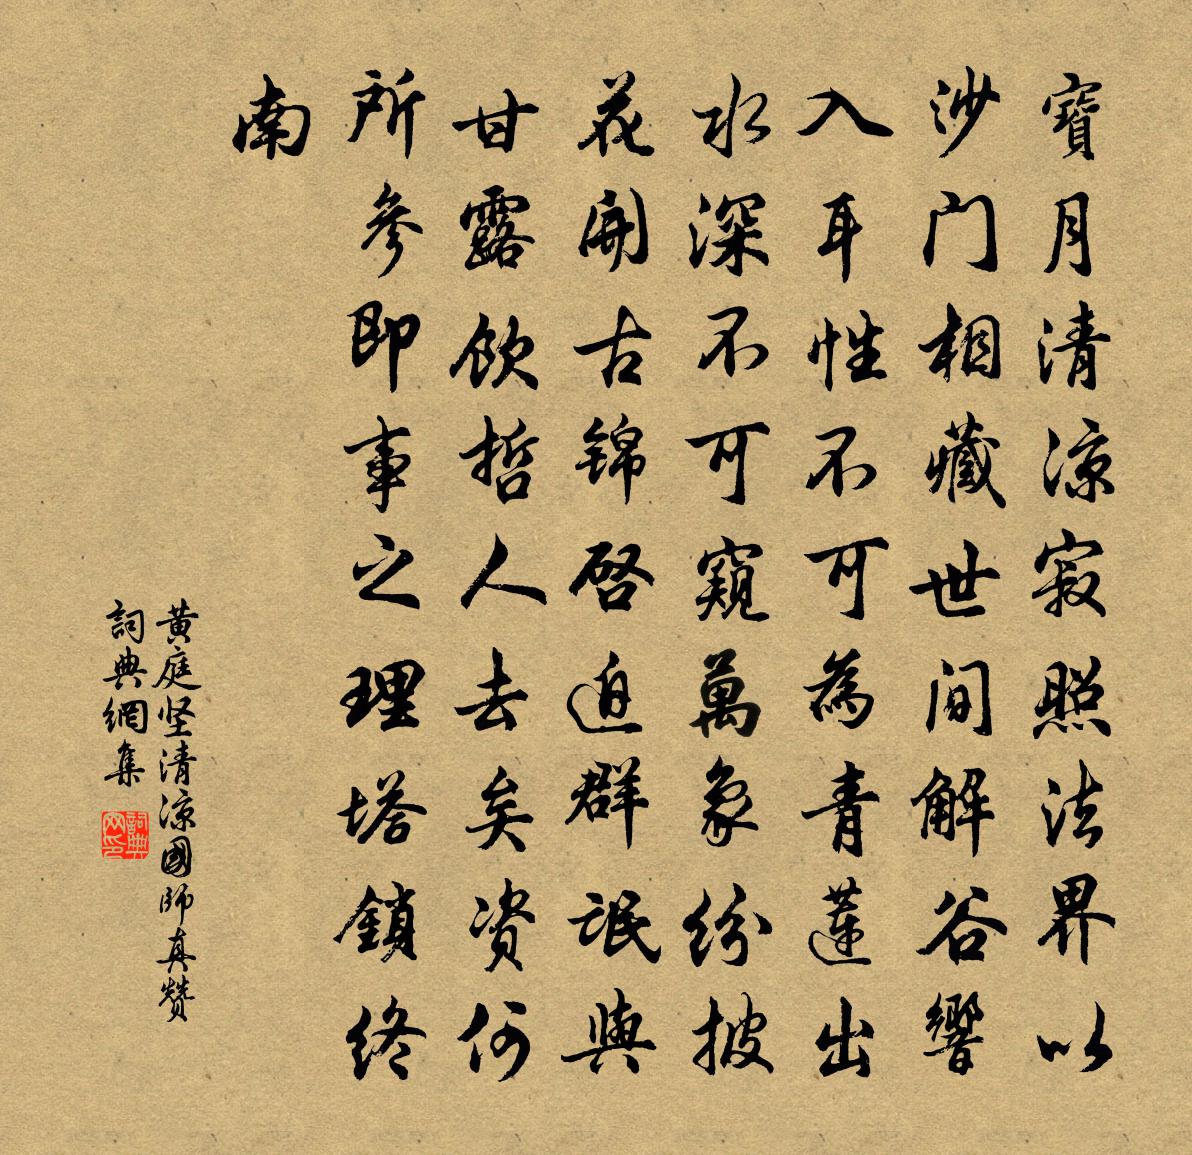 寶月清凉寂照法界以
沙门相藏世间解谷響
入耳性不可為青蓮出
水深不可窺萬象紛披
花開古锦啓迫群氓與
甘露飲哲人去矣资何
所參即事之理塔鎖终
南
黄庭坚清凉國師真赞
詞典網集
詞典网印